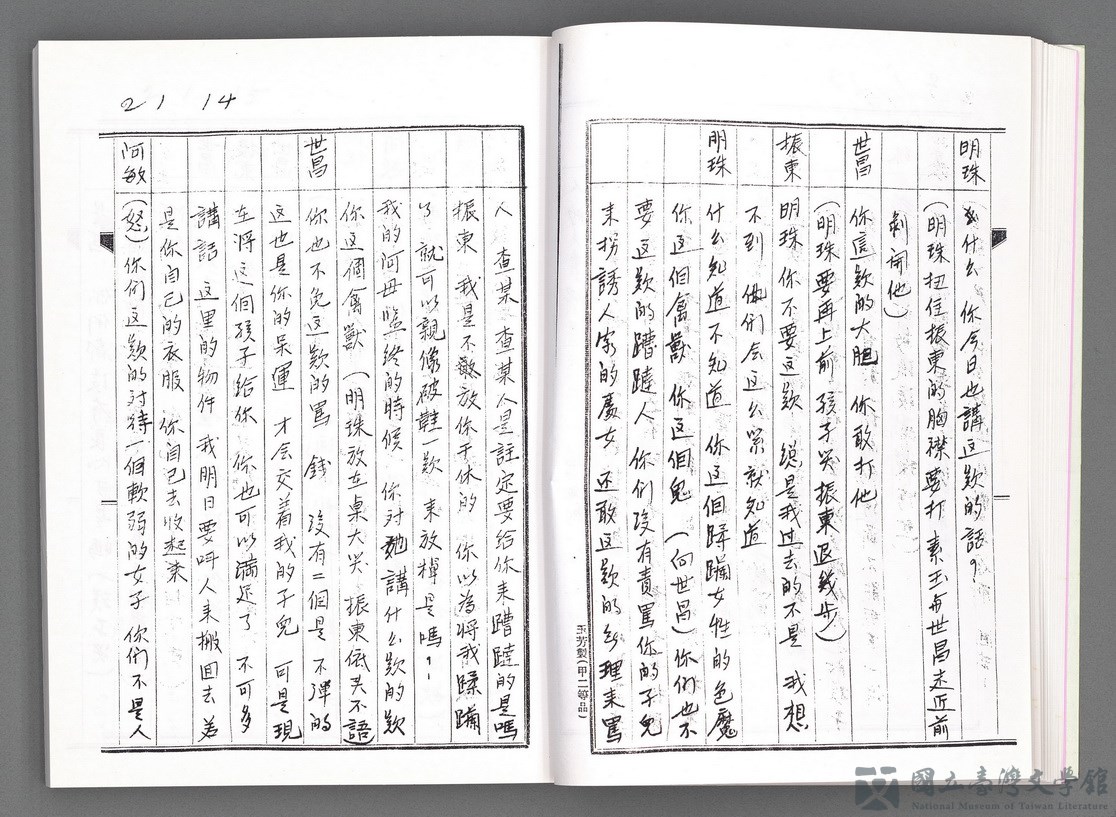 明珠 什么 你今日也講这欵的話?
(明珠扭住振東的胸襟要打 素玉与世昌走近前
剝開他)
世昌 你這欵的大胆 你敢打他
(明珠要再上前 孩子哭 振東退幾步)
振東 明珠 你不要这欵 總是我过去的不是 我想
不到 他們会这么緊就知道
明珠 什么知道不知道 你这個蹂躪女性的色魔
你这個禽獸 你这個鬼 (向世昌)你們也不
要这欵的蹧躂人 你們没有責罵你的子兒
来拐誘人家的處女 还敢这欵的無理来罵
人 查某 查某人是註定要给你来蹧躂的是嗎
振東 我是不敢放你干休的 你以為將我蹂躪
了 就可以親像破鞋一欵 来放棹是嗎?
我的阿母臨終的時候 你对她講什么欵的欵
你这個禽獸 (明珠放在桌大哭 振東低头不語)
世昌 你也不免这欵的罵 錢 没有二個是 不彈的
这也是你的呆運 才会交着我的子兒 可是現
在将这個孩子给你 你也可以满足了 不可多
講話 这里的物件 我明日要叫人来搬回去 若
是你自己的衣服 你自己去收起来
阿敏 (怒)你們这欵的对待一個軟弱的女子 你們不是人
21 14
玉芳製(甲二等品)
國立臺灣文學館
National Museum of Taiwan Literature